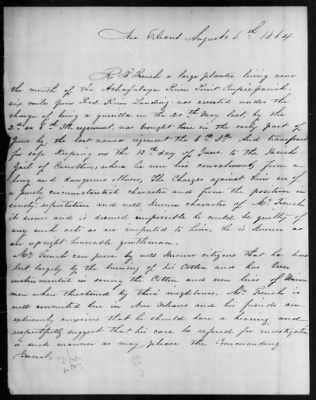 New Orleans August 5th 1864
R. L. French a large planter living near
the mouth of the Atchafalaya River Point Coupee parish,
six miles from Red River Landing was arrested under the
charge of being a guerilla on the 20th May last, by the
2d or 6th regiment, was brought here in the early part of
June by the last named regiment the 6th And transferred
for safe keeping on the 12th day of June to the Parish
Jail of Carrollton, where he now lies convalescent from a
long and dangerous illness, The Charges against him are of
a purely circumstantial character and from the position in
society reputation and well known character of Mr French
it seems and is deemed impossible he could be guilty of
any such acts as are imputed to him, he is known as
an upright honorable gentleman.
Mr French can prove by well known citizens that he has
lost largely by the burning of his Cotton and has been
instrumental in saving the Cotton and even lives of Union
men when threatened by their neighbors. Mr French is
well connected here in New Orleans and his friends are
extremely anxious that he should have a hearing and
respectfully suggest that his case be refered for investigation
in such manner as may please the Commanding
General.